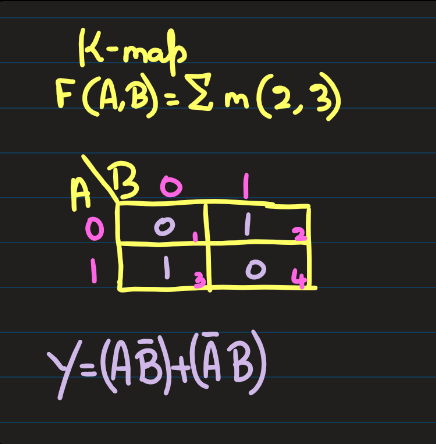 K-map
F(A,B)=Σm(2,3)
A\B 0 1
0 0 1 1 2
1 1 3 0 4
Y=(AB̅)+(A̅B)